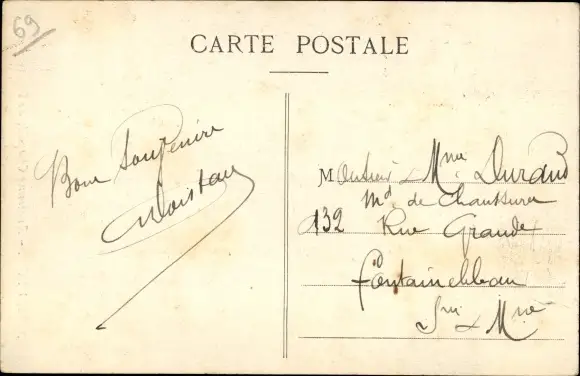 69
CARTE POSTALE
Bon Souvenir
Monsieur & Mme Durand
Md de Chaussures
132 Rue Grande
Fontainebleau
Sne & Mne